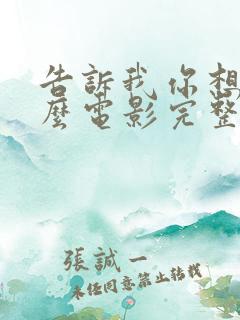 告訴我 你想
麼電影完整
張誠一
未经同意禁止转载